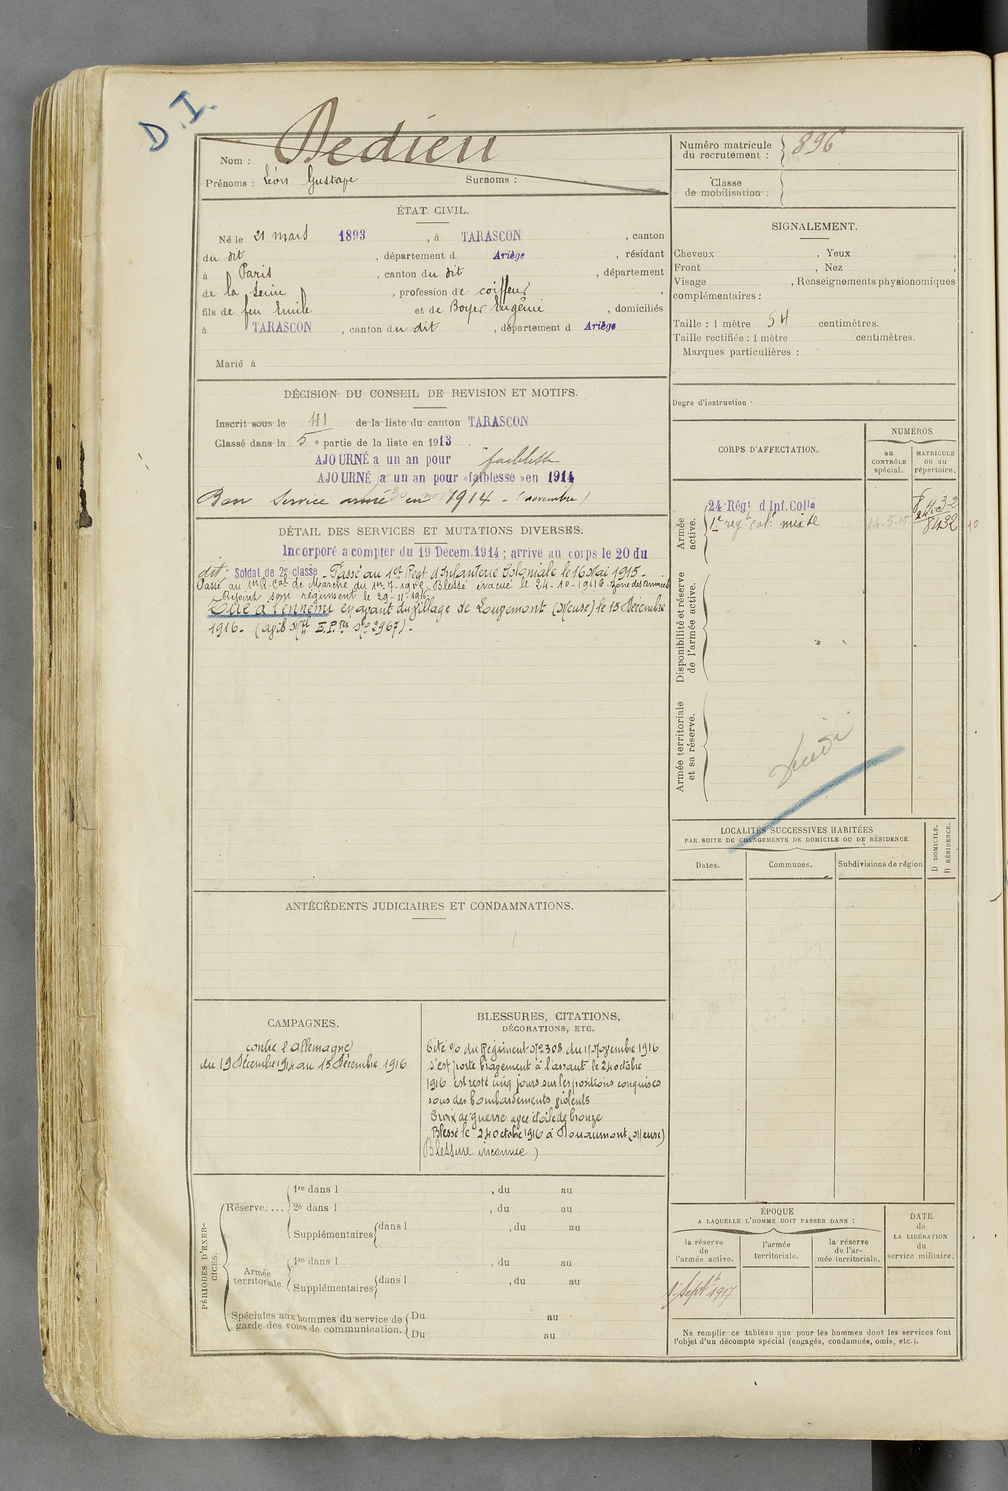 D.I.
Dedieu
Nom :
Prénoms : Léon Gustave Surnoms :
Numéro matricule du recrutement : 896
Classe de mobilisation :
ÉTAT CIVIL.
Né le 21 mars 1893, à TARASCON, canton
du dit, département d Ariège, résidant
à Paris, canton du dit, département
de la Seine, profession de coiffeur,
fils de feu Emile et de Boyer Eugénie, domiciliés
à TARASCON, canton du dit, département d Ariège
Marié à
SIGNALEMENT.
Cheveux , Yeux ,
Front , Nez ,
Visage , Renseignements physionomiques
complémentaires :
Taille : 1 mètre 54 centimètres.
Taille rectifiée : 1 mètre centimètres.
Marques particulières :
Degré d'instruction
DÉCISION DU CONSEIL DE REVISION ET MOTIFS.
Inscrit sous le 41 de la liste du canton TARASCON
Classé dans la 5e partie de la liste en 1913.
AJOURNÉ a un an pour faiblesse
AJOURNÉ a un an pour «faiblesse» en 1914
Bon Service armé en 1914 - (novembre)
DÉTAIL DES SERVICES ET MUTATIONS DIVERSES.
Incorporé a compter du 19 Décem. 1914 ; arrive au corps le 20 du
dit; Soldat de 2e classe. Passé au 1er Régt d'Infanterie Coloniale le 16 Mai 1915.
Passé au 1er R. Cal de Marche du 1er 7 Blessé évacué le 24-10-1916 Zone des Armées
Rejoint son régiment le 29-11-1916.
Tué à l'ennemi en avant du village de Louvemont (Meuse) le 15 Décembre
1916. (avis Mel E.P. No 2967).
CORPS D'AFFECTATION.
NUMÉROS
au CONTRÔLE spécial.
MATRICULE ou au répertoire.
Armée active.
24 Régt d Inf. Colle 8432
1er régt cal mixte 14.5.15 8432
10
Disponibilité et réserve de l'armée active.
Armée territoriale et sa réserve.
LOCALITÉS SUCCESSIVES HABITÉES
PAR SUITE DE CHANGEMENTS DE DOMICILE OU DE RÉSIDENCE
Dates.
Communes.
Subdivisions de région
D DOMICILE.
R RÉSIDENCE.
ANTÉCÉDENTS JUDICIAIRES ET CONDAMNATIONS.
CAMPAGNES.
contre l'allemagne
du 19 Décembre 1914 au 15 Décembre 1916
BLESSURES, CITATIONS,
DÉCORATIONS, ETC.
Cité O/ du Régiment No 308 du 11 Novembre 1916
s'est porté bravement à l'assaut le 24 octobre
1916 est resté cinq jours sur les positions conquises
sous des bombardements violents
Croix de guerre avec étoile de bronze
Blessé le 24 octobre 1916 à Douaumont (Meuse)
Blessure inconnue)
PÉRIODES D'EXERCICES.
Réserve.... 1re dans l , du au
2e dans l , du au
Supplémentaires dans l , du au
Armée territoriale. 1re dans l , du au
Supplémentaires dans l , du au
Spéciales aux hommes du service de Du au
garde des voies de communication. Du au
ÉPOQUE
A LAQUELLE L'HOMME DOIT PASSER DANS :
la réserve de l'armée active.
l'armée territoriale.
la réserve de l'armée territoriale.
DATE de LA LIBÉRATION du service militaire.
1 Septre 1917
Ne remplir ce tableau que pour les hommes dont les services font
l'objet d'un décompte spécial (engagés, condamnés, omis, etc.).